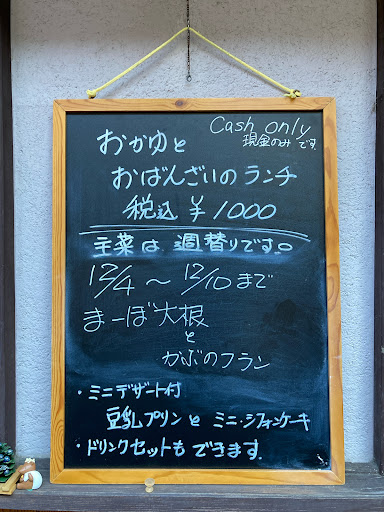 Cash only
現金のみです。
おかゆと
おばんざいのランチ
税込 ¥1000
主菜は週替りです。
12/4〜12/10まで
まーぼ大根
と
かぶのフラン
・ミニデザート付
豆乳プリンとミニ・シフォンケーキ
・ドリンクセットもできます。